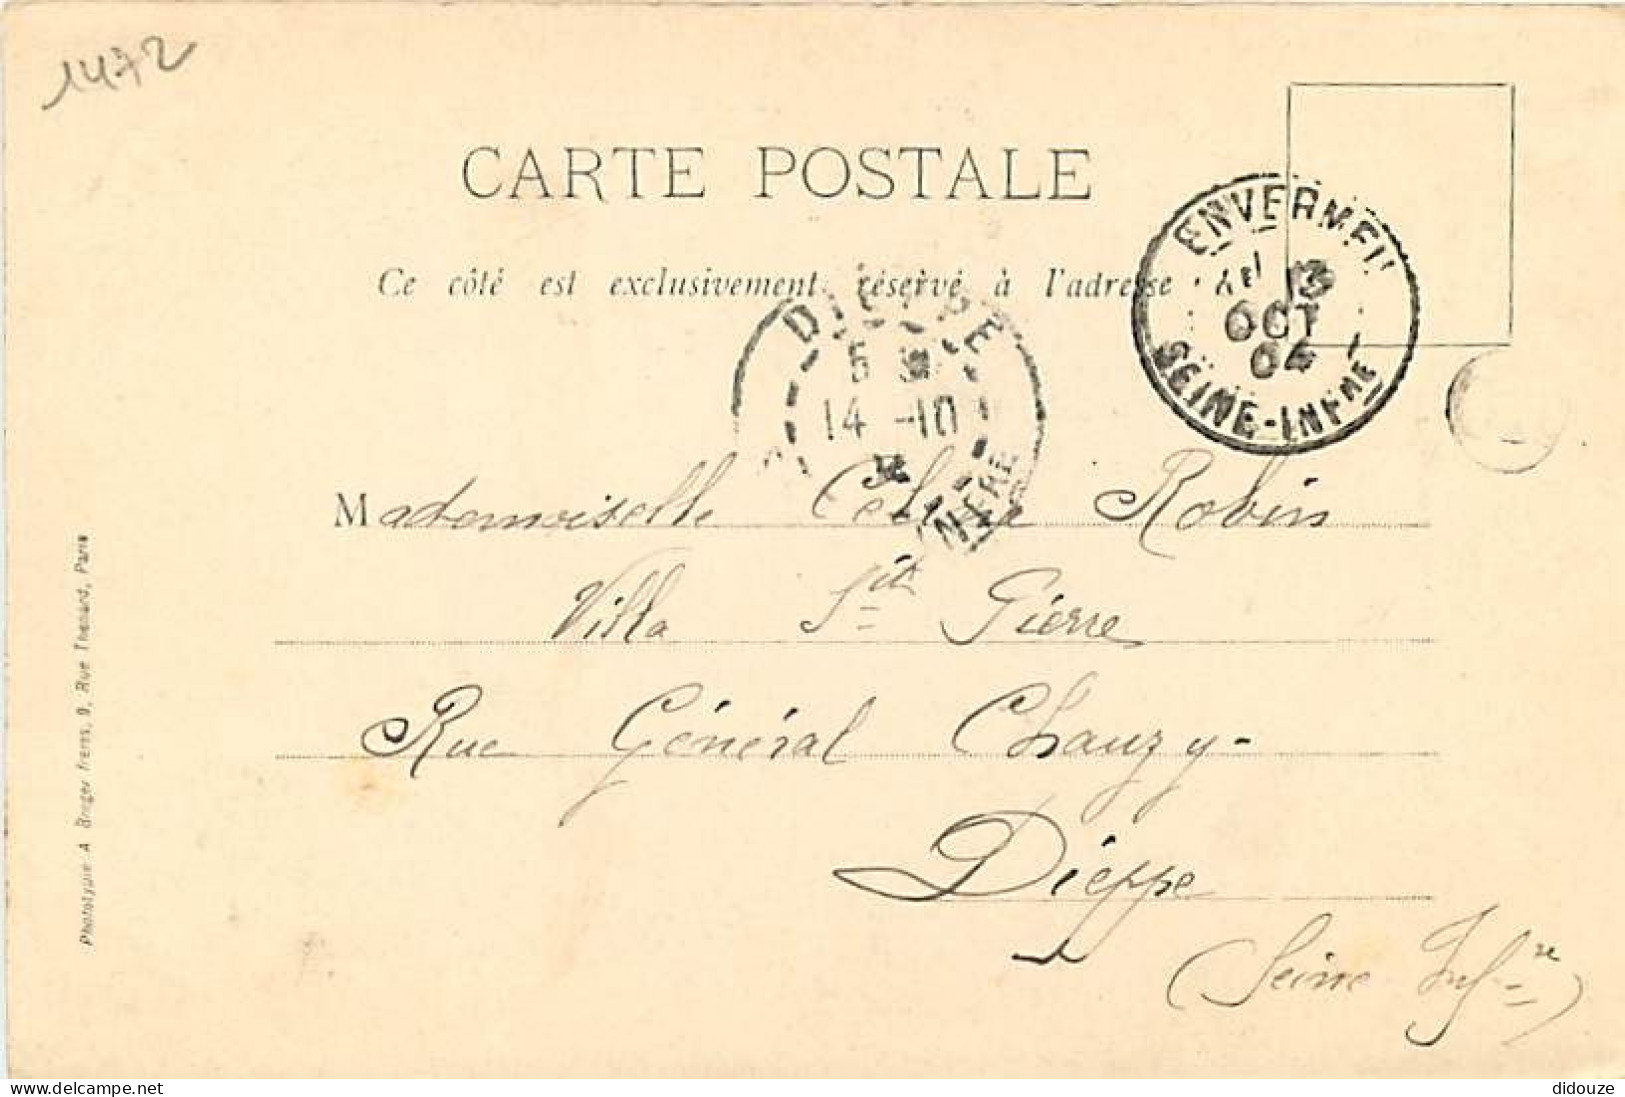 1472
CARTE POSTALE
Ce côté est exclusivement réservé à l'adresse
ENVERMEU
13
OCT
04
SEINE-INFRE
DIEPPE
5
14 -10
Mademoiselle Robin
Villa St Pierre
Rue Général Chanzy-
Dieppe
(Seine Infre)
Phototypie A Breger frères, 9, Rue Thénard, Paris
delcampe.net
didouze